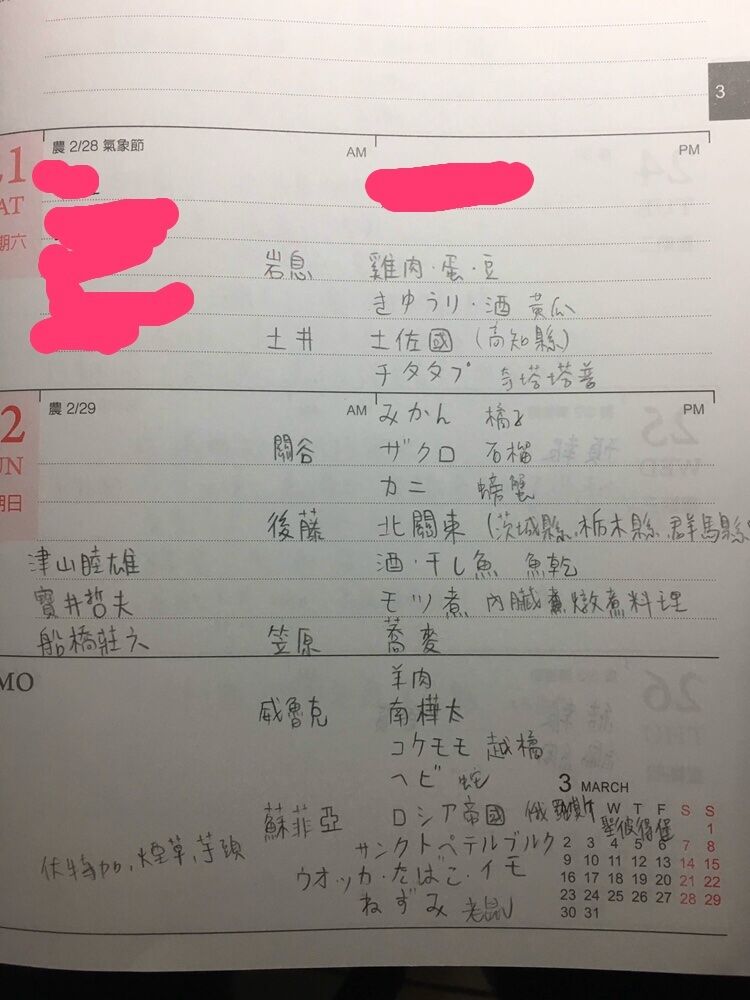 3
農 2/28 氣象節 AM PM
1
AT
期六
岩息 雞肉·蛋·豆
きゆうり·酒 黃瓜
土井 土佐國 (高知縣)
チタタプ 奇塔塔普
2 農 2/29 AM PM
みかん 橘子
UN 關谷 ザクロ 石榴
期日 カニ 螃蟹
後藤 北關東 (茨城縣、栃木縣、群馬縣
津山睦雄 酒·干し魚 魚乾
寶井哲夫 モツ煮 內臟燉煮料理
船橋莊六 笠原 蕎麥
MO 羊肉
威魯克 南樺太
コケモモ 越橘
ヘビ 蛇
蘇菲亞 ロシア帝國 俄羅斯
サンクトペテルブルク 聖彼得堡
伏特加、煙草、芋頭 ウオッカ·たばこ·イモ
ねずみ 老鼠
3 MARCH
W T F S S
1
2 3 4 5 6 7 8
9 10 11 12 13 14 15
16 17 18 19 20 21 22
23 24 25 26 27 28 29
30 31